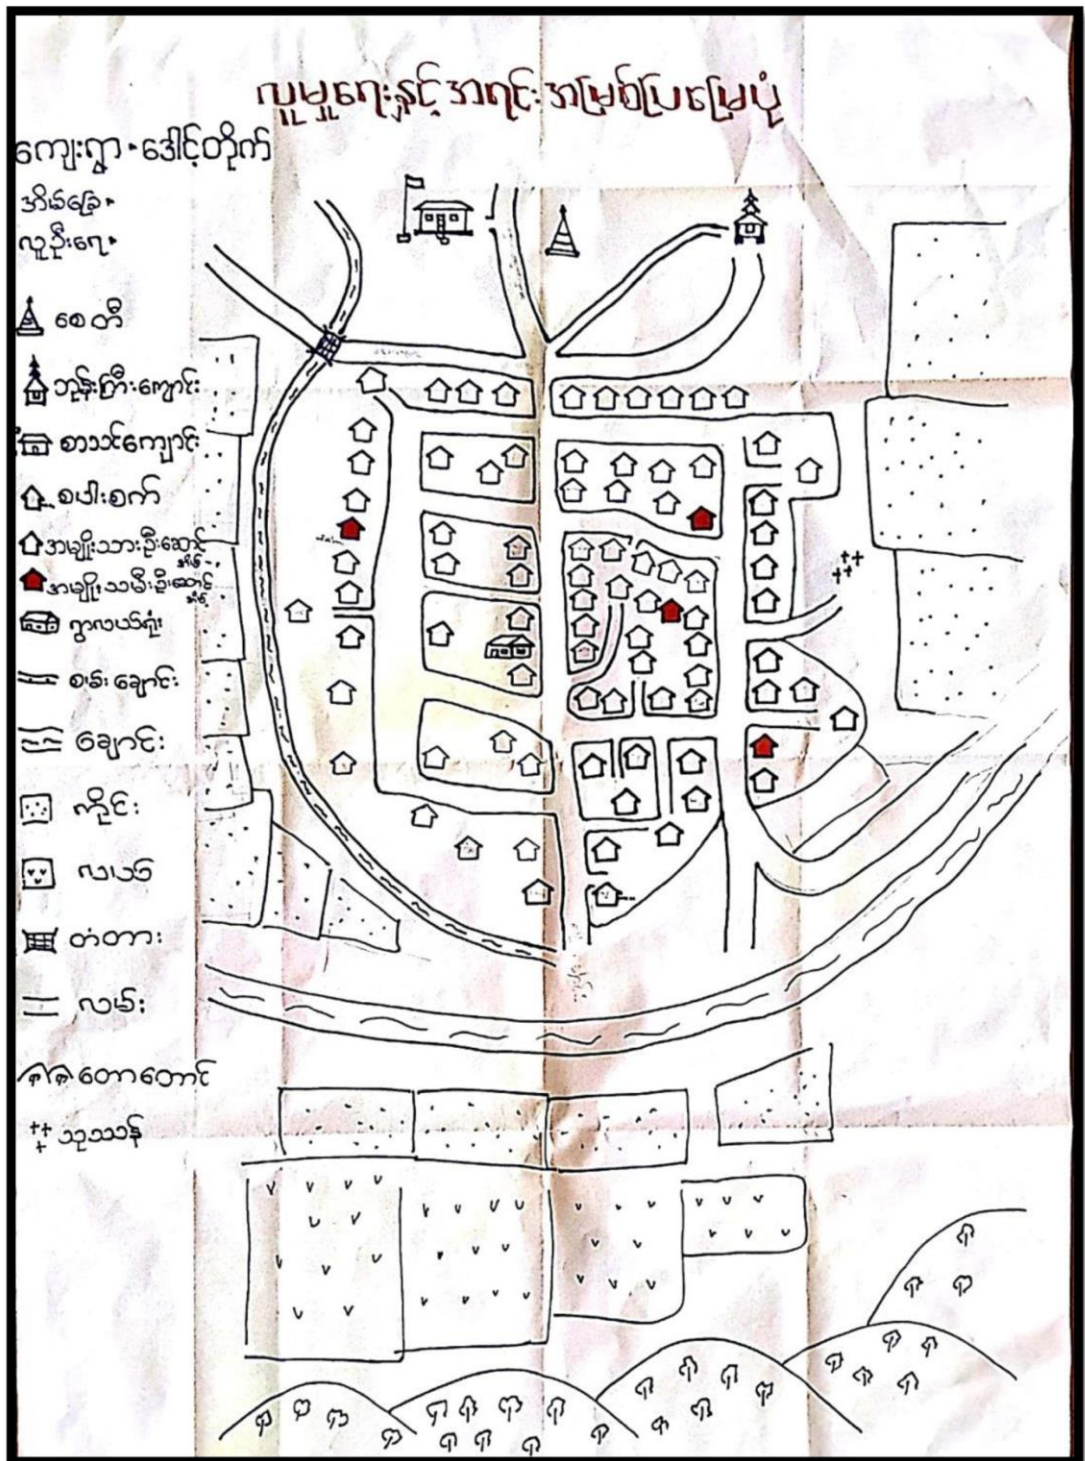 လူမှုရေးနှင့်အရင်းအမြစ်ပြမြေပုံ
ကျေးရွာ - ဒေါင့်တိုက်
အိမ်ခြေ -
လူဦးရေ -
စေတီ
ဘုန်းကြီးကျောင်း
စာသင်ကျောင်း
စပါးစက်
အမျိုးသားဦးဆောင်အိမ်
အမျိုးသမီးဦးဆောင်အိမ်
ရွာလယ်ရုံး
စမ်းချောင်း
ချောင်း
ကိုင်း
လယ်
တံတား
လမ်း
တောတောင်
သုဿန်